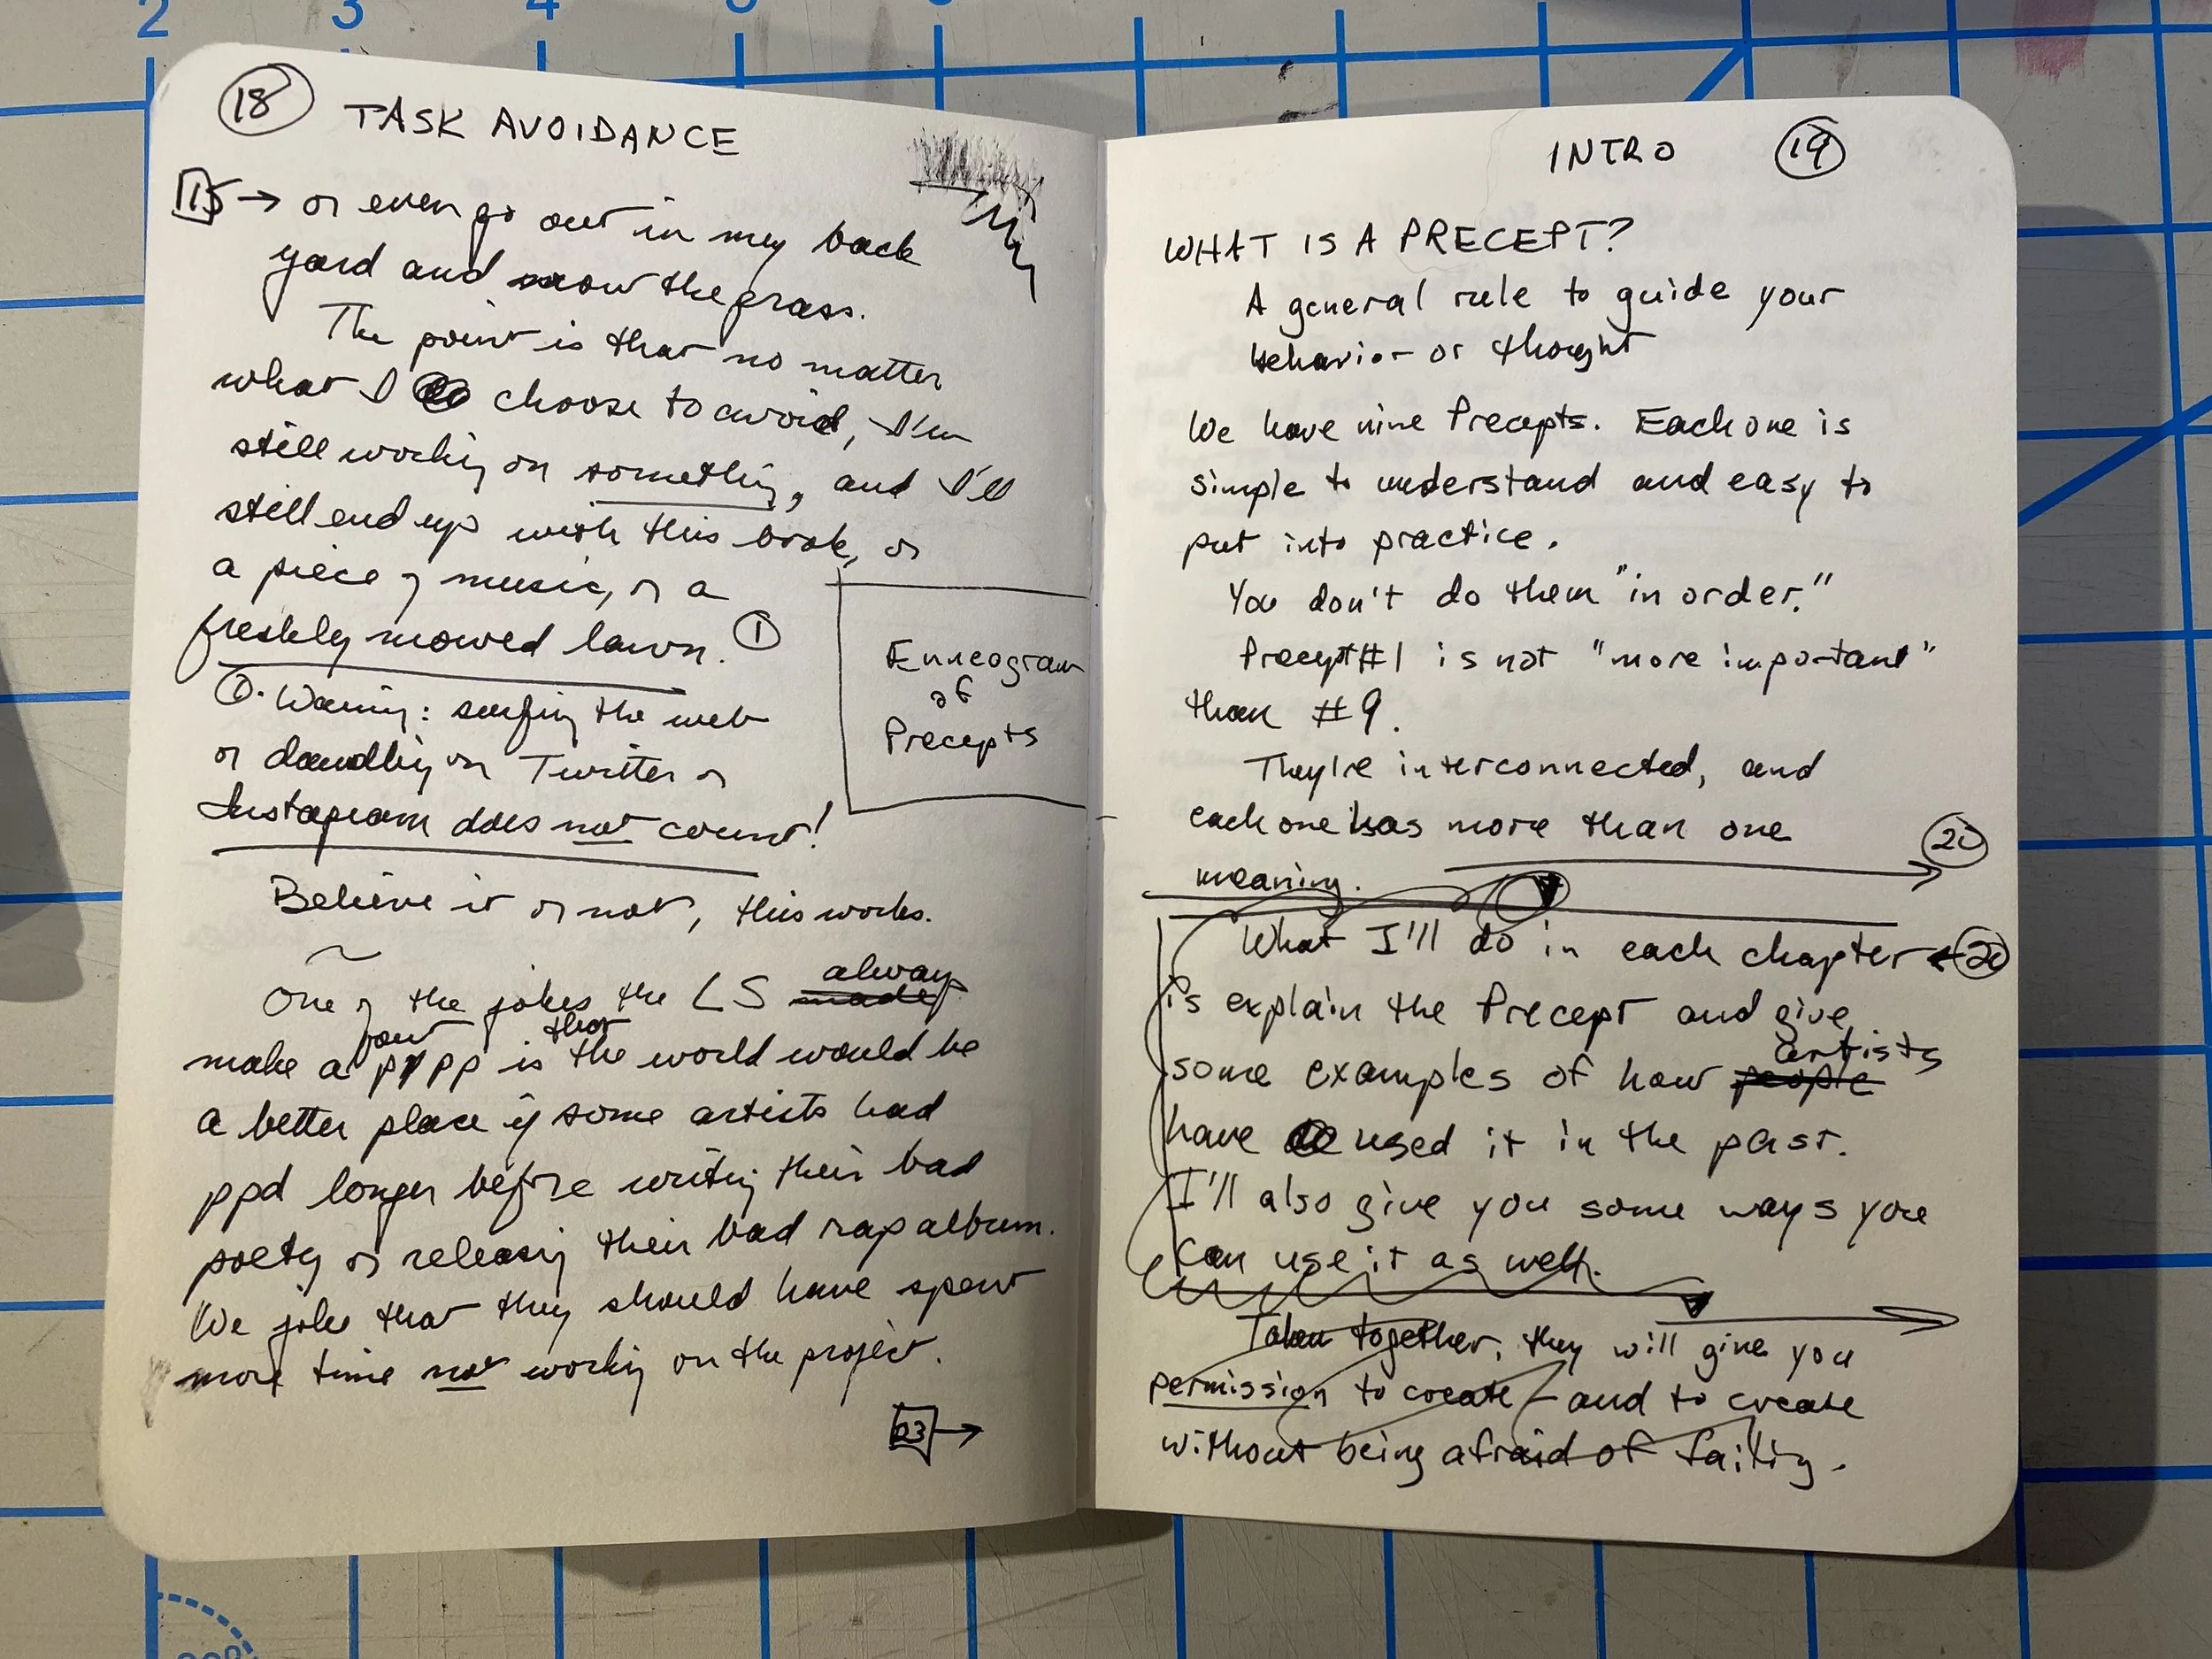 2 3 4
18 TASK AVOIDANCE
15 → or even go out in my back
yard and mow the grass.
The point is that no matter
what I choose to avoid, I'm
still working on something, and I'll
still end up with this book, or
a piece of music, or a
freshly mowed lawn. ①
①. Warning: surfing the web
or dawdling on Twitter or
Instagram does not count!
Enneagram
of
Precepts
Believe it or not, this works.
~
always
One of the jokes the LS made
that
make a pp is the world would be
a better place if some artists had
ppd longer before writing their bad
poetry or releasing their bad rap album.
We joke that they should have spent
more time not working on the project.
23 →
INTRO 19
WHAT IS A PRECEPT?
A general rule to guide your
behavior or thought
We have nine Precepts. Each one is
simple to understand and easy to
put into practice.
You don't do them "in order."
Precept #1 is not "more important"
than #9.
They're interconnected, and
each one has more than one
meaning. → 20
What I'll do in each chapter ← 20
is explain the Precept and give
artists
some examples of how people
have used it in the past.
I'll also give you some ways you
can use it as well.
Taken together, they will give you
permission to create – and to create
without being afraid of failing.